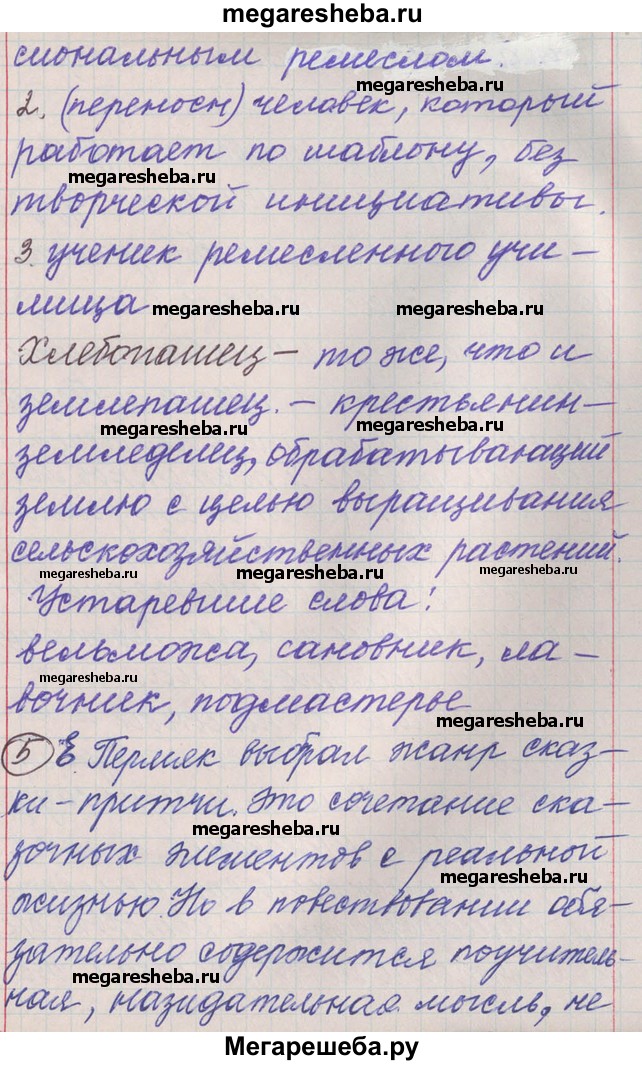 megaresheba.ru
сиональным ремеслом.
megaresheba.ru
2. (переносн) человек, который
работает по шаблону, без
megaresheba.ru
творческой инициативы.
3. ученик ремесленного учи-
лища megaresheba.ru megaresheba.ru
Хлебопашец - то же, что и
землепашец. - крестьянин-
megaresheba.ru megaresheba.ru
земледелец, обрабатывающий
землю с целью выращивания
сельскохозяйственных растений.
megaresheba.ru megaresheba.ru megaresheba.ru
Устаревшие слова:
вельможа, сановник, ла-
вочник, подмастерье
megaresheba.ru
5 Е. Пермяк выбрал жанр сказ-
ки-притчи. Это сочетание ска-
megaresheba.ru
зочных элементов с реальной
megaresheba.ru
жизнью. Но в повествовании обя-
зательно содержится поучитель-
megaresheba.ru
ная, назидательная мысль, не
Мегарешеба.ру